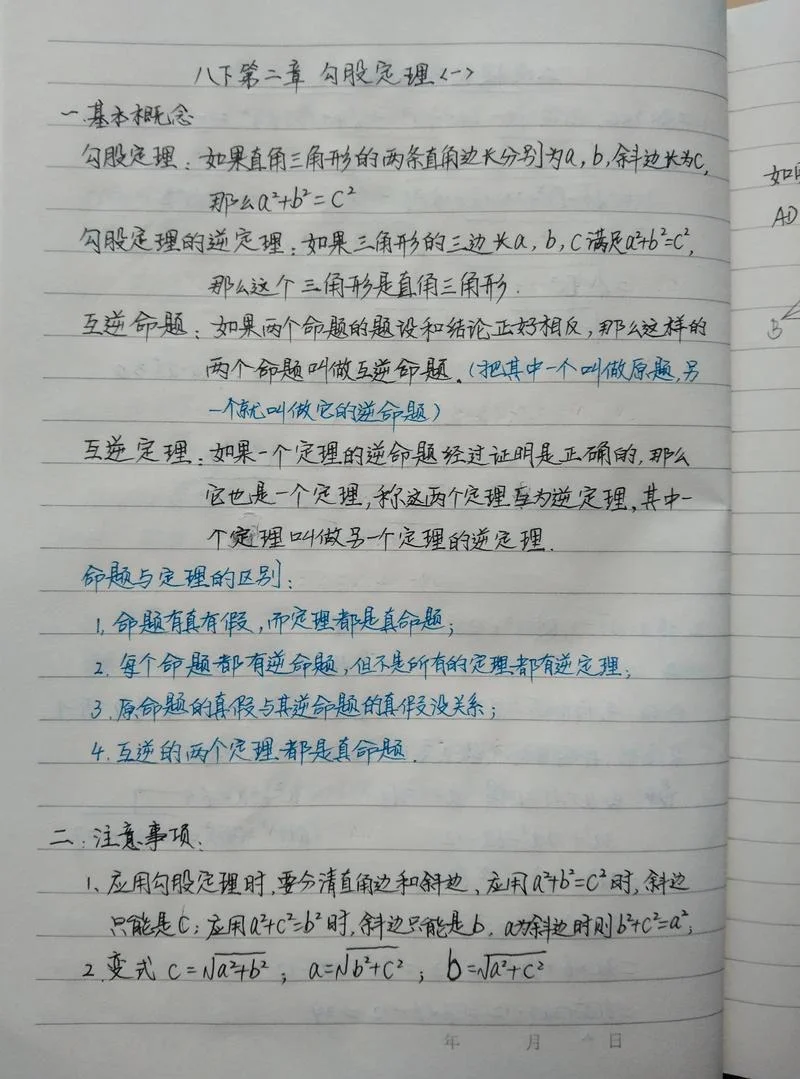 八下第二章 勾股定理<一>
一.基本概念
勾股定理：如果直角三角形的两条直角边长分别为a,b,斜边长为c,
那么a²+b²=c²
勾股定理的逆定理：如果三角形的三边长a,b,c满足a²+b²=c²,
那么这个三角形是直角三角形.
互逆命题：如果两个命题的题设和结论正好相反，那么这样的
两个命题叫做互逆命题。(把其中一个叫做原题,另
一个就叫做它的逆命题)
互逆定理：如果一个定理的逆命题经过证明是正确的,那么
它也是一个定理,称这两个定理互为逆定理,其中一
个定理叫做另一个定理的逆定理.
命题与定理的区别：
1.命题有真有假,而定理都是真命题；
2.每个命题都有逆命题,但不是所有的定理都有逆定理；
3.原命题的真假与其逆命题的真假没关系；
4.互逆的两个定理都是真命题.
二.注意事项：
1、应用勾股定理时,要分清直角边和斜边、应用a²+b²=c²时,斜边
只能是c；应用a²+c²=b²时,斜边只能是b，a为斜边时则b²+c²=a²；
2.变式 c=√a²+b²；a=√b²+c²；b=√a²+c²
年 月 日
如
AD
B